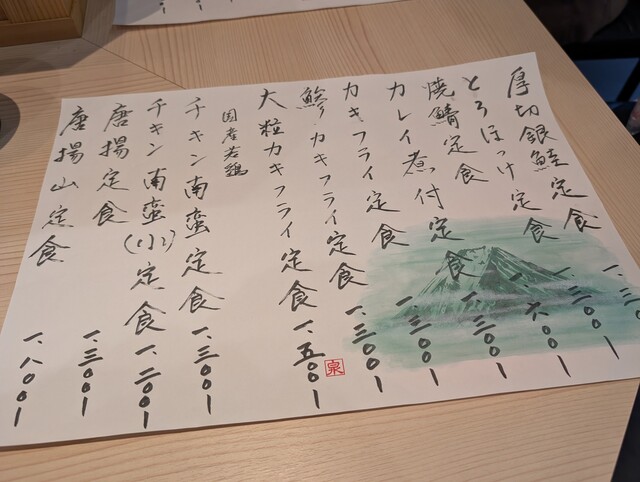 厚切銀鮭定食 一、三〇
とろほっけ定食 一、三〇〇ー
焼鯖定食 一、六〇〇ー
カレイ煮付定食 一、三〇〇ー
カキフライ定食 一、三〇〇ー
鯵・カキフライ定食 一、三〇〇ー
大粒カキフライ定食 一、五〇〇ー
国産若鶏
チキン南蛮定食 一、三〇〇ー
チキン南蛮(小)定食 一、二〇〇ー
唐揚定食 一、三〇〇ー
唐揚山定食 一、八〇〇ー
泉